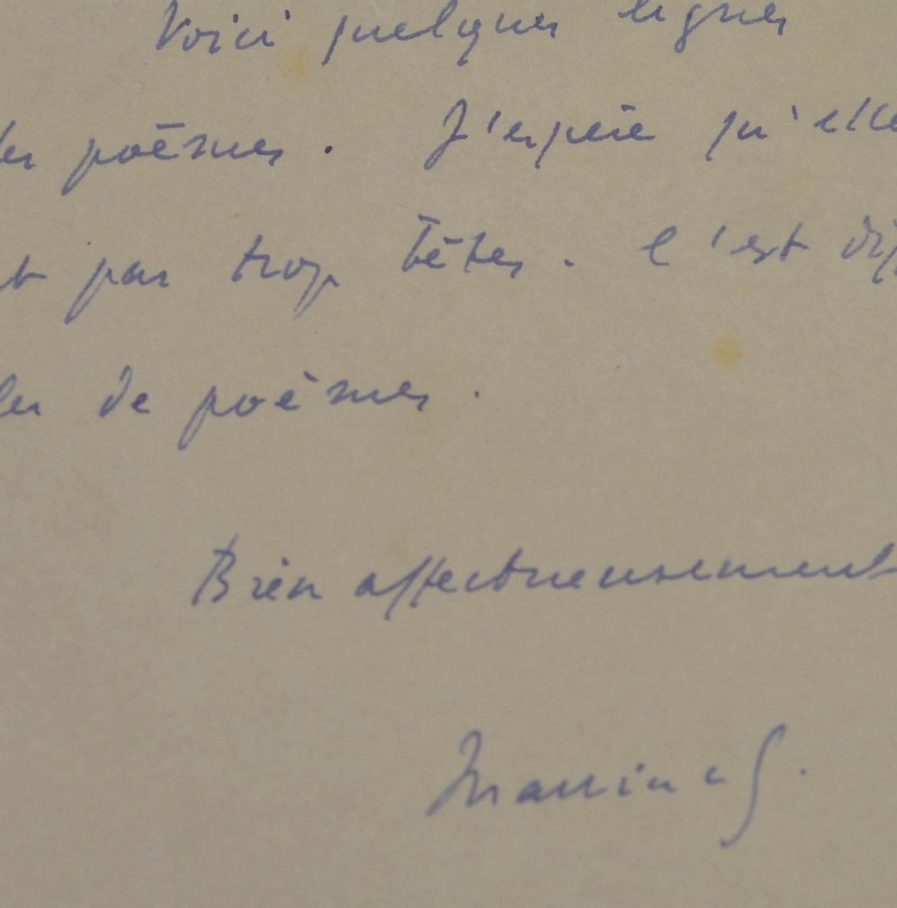 Voici quelques lignes
les poèmes. J'espère qu'elle
t pas trop bêtes. C'est dif
ler de poèmes.
Bien affectueusement